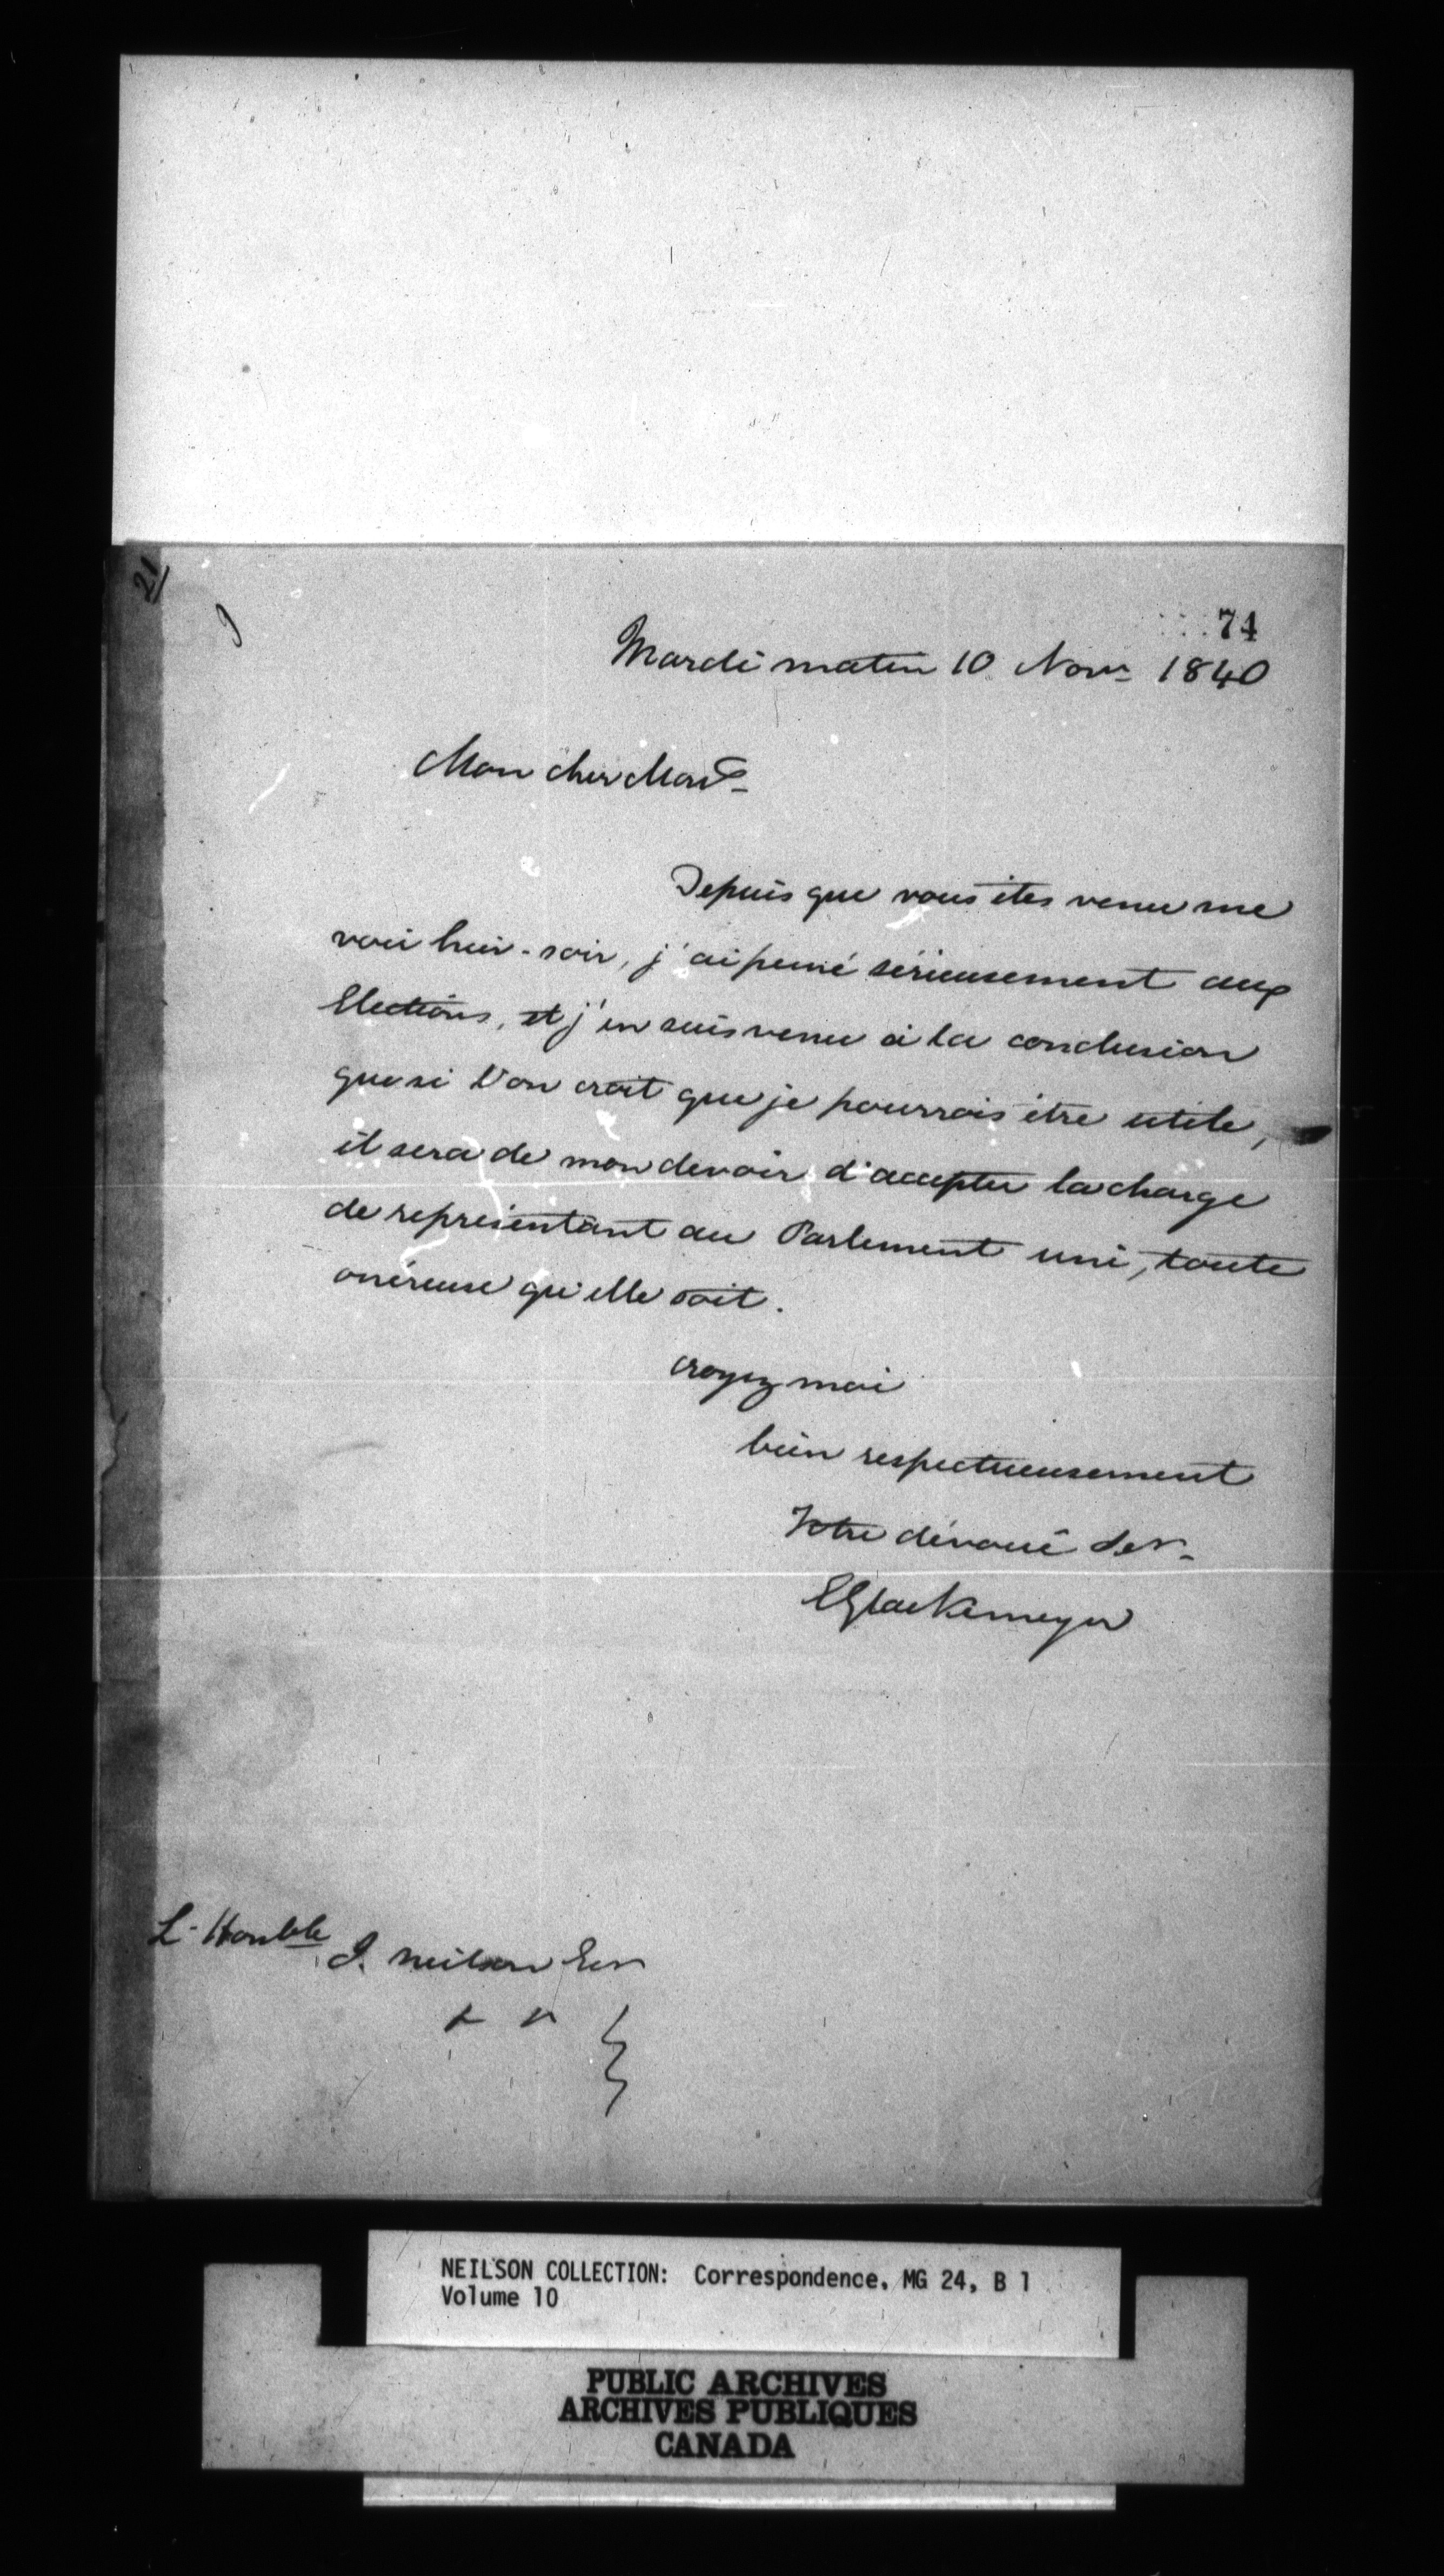 21
74
Mardi matin 10 Novr 1840
Mon cher Monsr
Depuis que vous êtes venu me
voir hier-soir, j'ai pensé sérieusement aux
Elections, et j'en suis venu à la conclusion
que si l'on croit que je pourrais être utile,
il sera de mon devoir d'accepter la charge
de représentant au Parlement uni, toute
onéreuse qu'elle soit.
croyez moi
bien respectueusement
Votre dévoué Ser.
EGlackemeyer
L'Honble J. Neilson Ecr
NEILSON COLLECTION: Correspondence, MG 24, B 1
Volume 10
PUBLIC ARCHIVES
ARCHIVES PUBLIQUES
CANADA